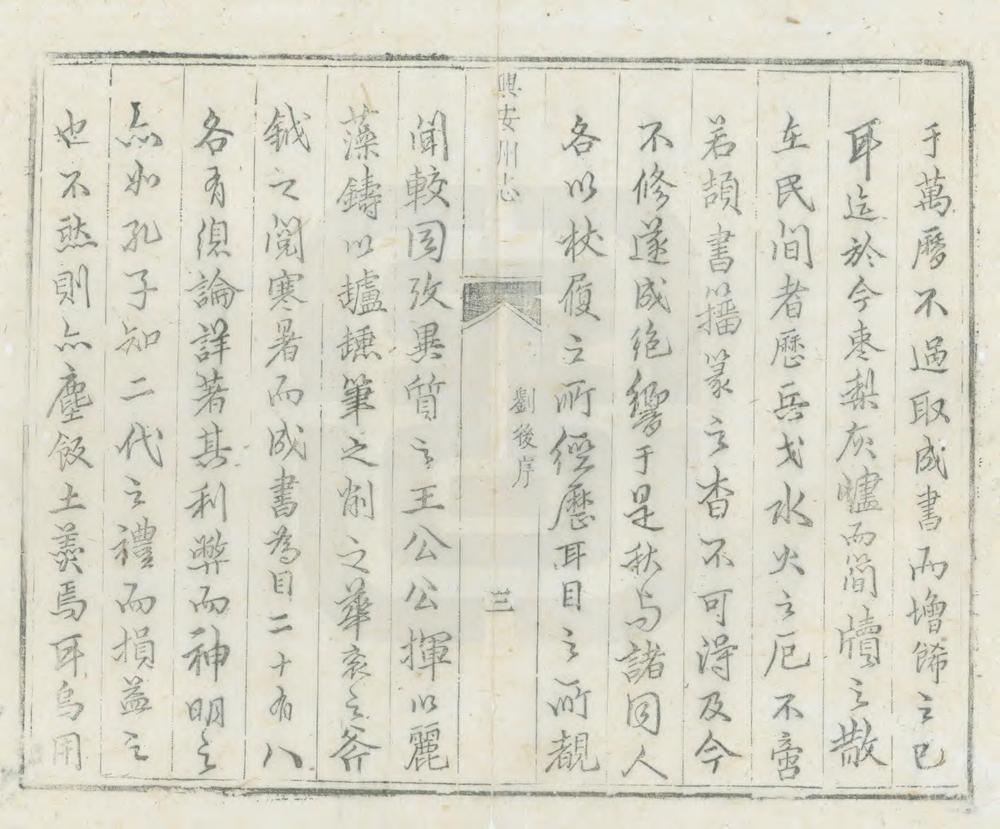 于萬曆不過取成書而增飾之已
耳迄於今枣梨灰燼而簡牘之散
在民间者歷兵戈水火之厄不啻
若頡書籀篆之杳不可得及今
不修遂成绝響于是秋与諸同人
各以杖履之所經歷耳目之所覩
興安州志
劉後序
三
聞較同攷異質之王公公揮以麗
藻鑄以爐錘筆之削之華衮之斧
鉞之閲寒暑而成書為目二十有八
各有總論詳著其利弊而神明之
亦如孔子知二代之禮而損益之
也不然則亦塵飯土羹焉耳烏用